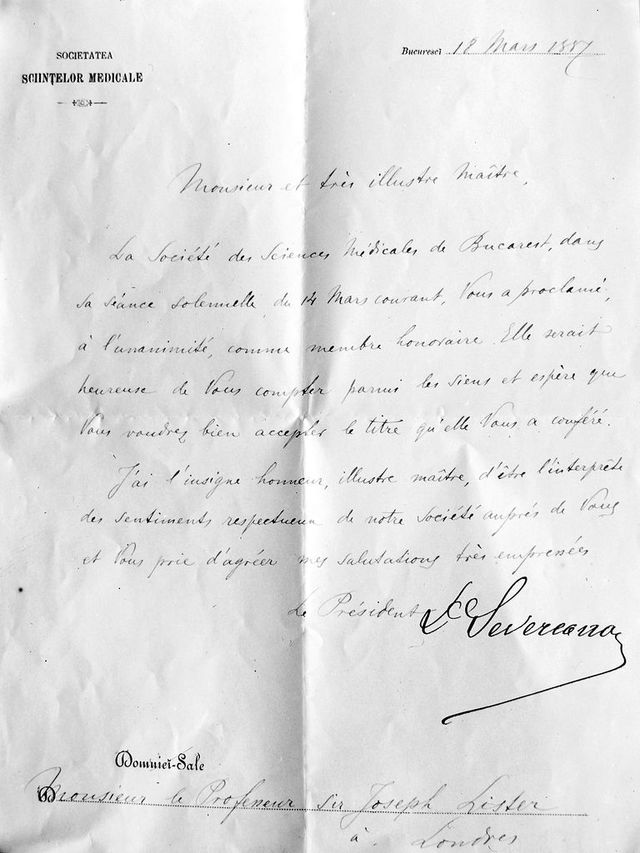 SOCIETATEA
SCIINȚELOR MEDICALE
Bucuresci 18 Mars 1887
Monsieur et très illustre Maître,
La Société des Sciences Médicales de Bucarest, dans
sa séance solennelle du 14 Mars courant, Vous a proclamé,
à l'unanimité, comme membre honoraire. Elle serait
heureuse de Vous compter parmi les siens et espère que
Vous voudrez bien accepter le titre qu'elle Vous a conféré.
J'ai l'insigne honneur, illustre maître, d'être l'interprète
des sentiments respectueux de notre Société auprès de Vous
et Vous prie d'agréer mes salutations très empressées
Le Président Dr Severeano
Domnieĭ-Sale
Monsieur le Professeur Sir Joseph Lister
à Londres